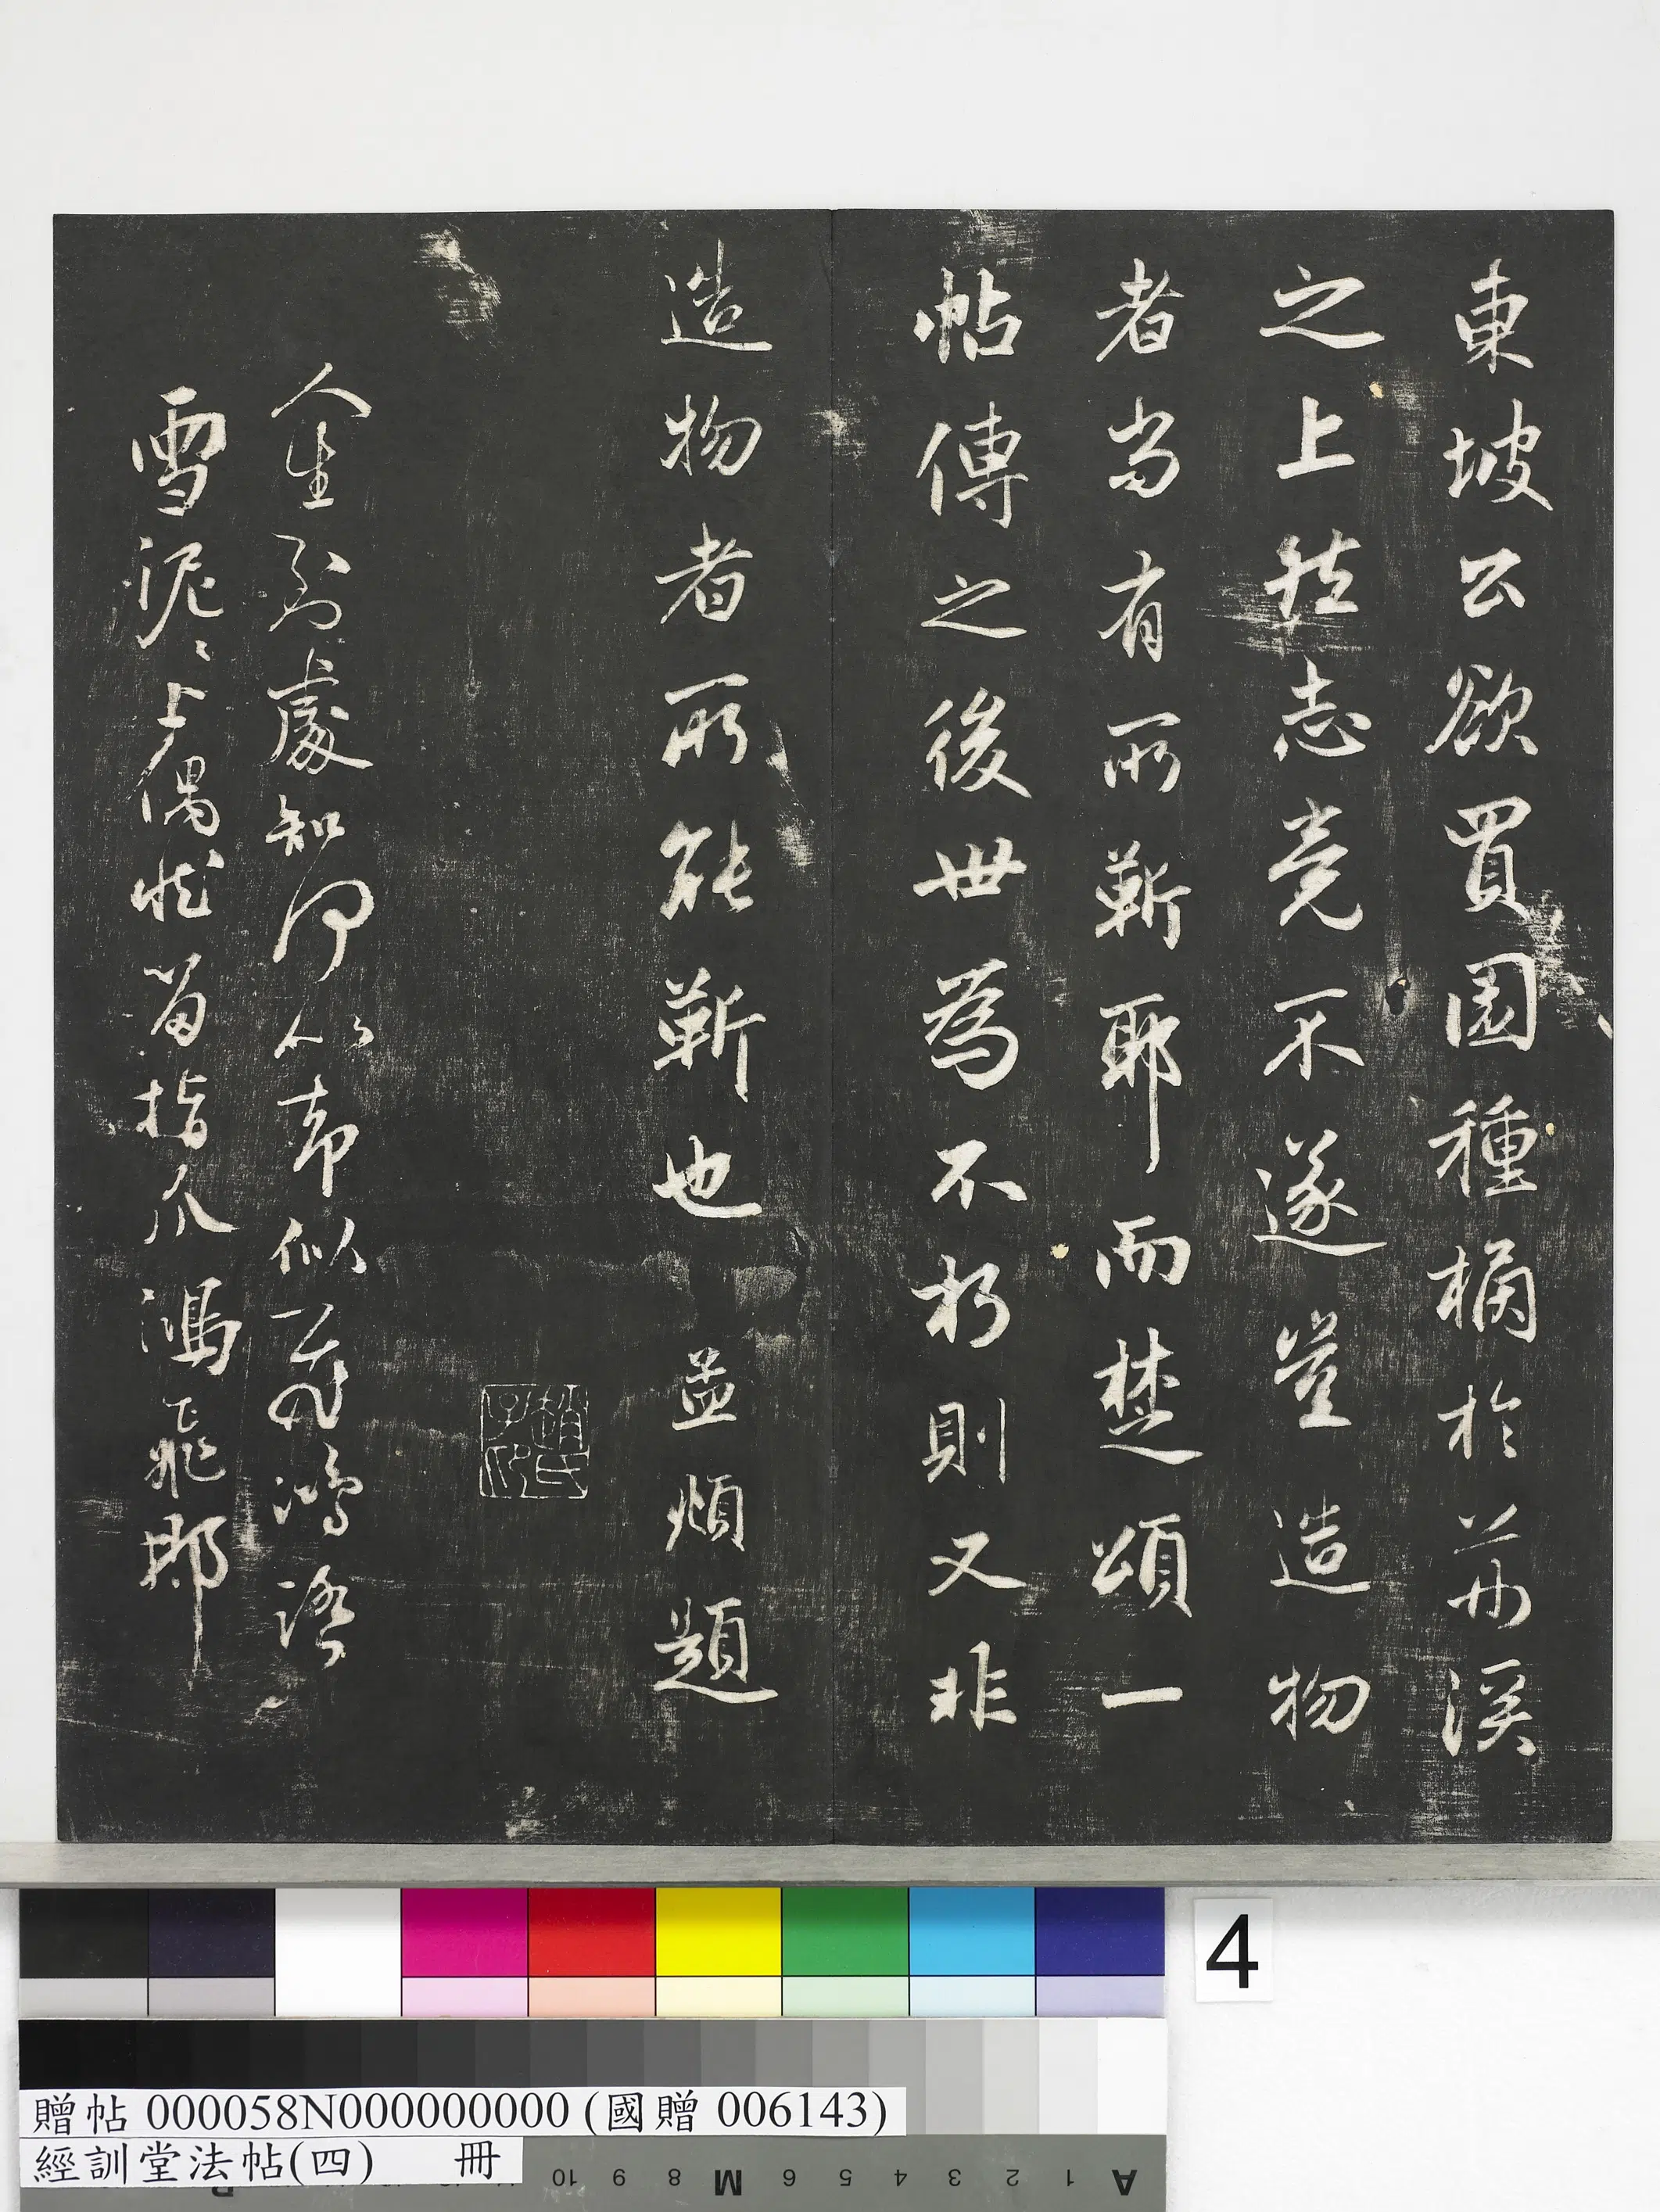 東坡公欲買園種橘於荊溪
之上然志竟不遂豈造物
者當有所靳耶而楚頌一
帖傳之後世為不朽則又非
造物者所能靳也 孟頫題
趙氏子印
人生到處知何似恰似飛鴻踏
雪泥泥上偶然留指爪鴻飛那
4
贈帖 000058N000000000 (國贈 006143)
經訓堂法帖(四) 冊
10 9 8 M 6 5 4 3 2 1 A